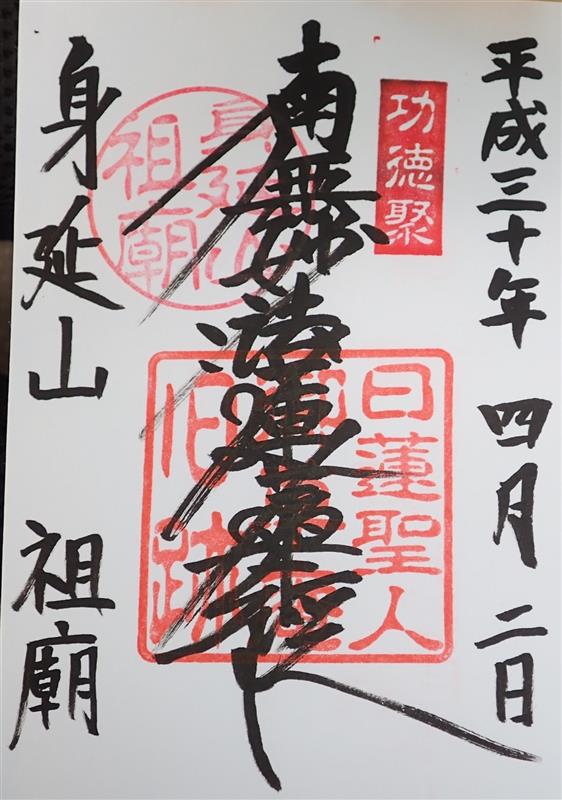 平成三十年 四月 二日
功徳聚
南無妙法蓮華経
日蓮聖人
旧跡
身延山
祖廟
身延山 祖廟